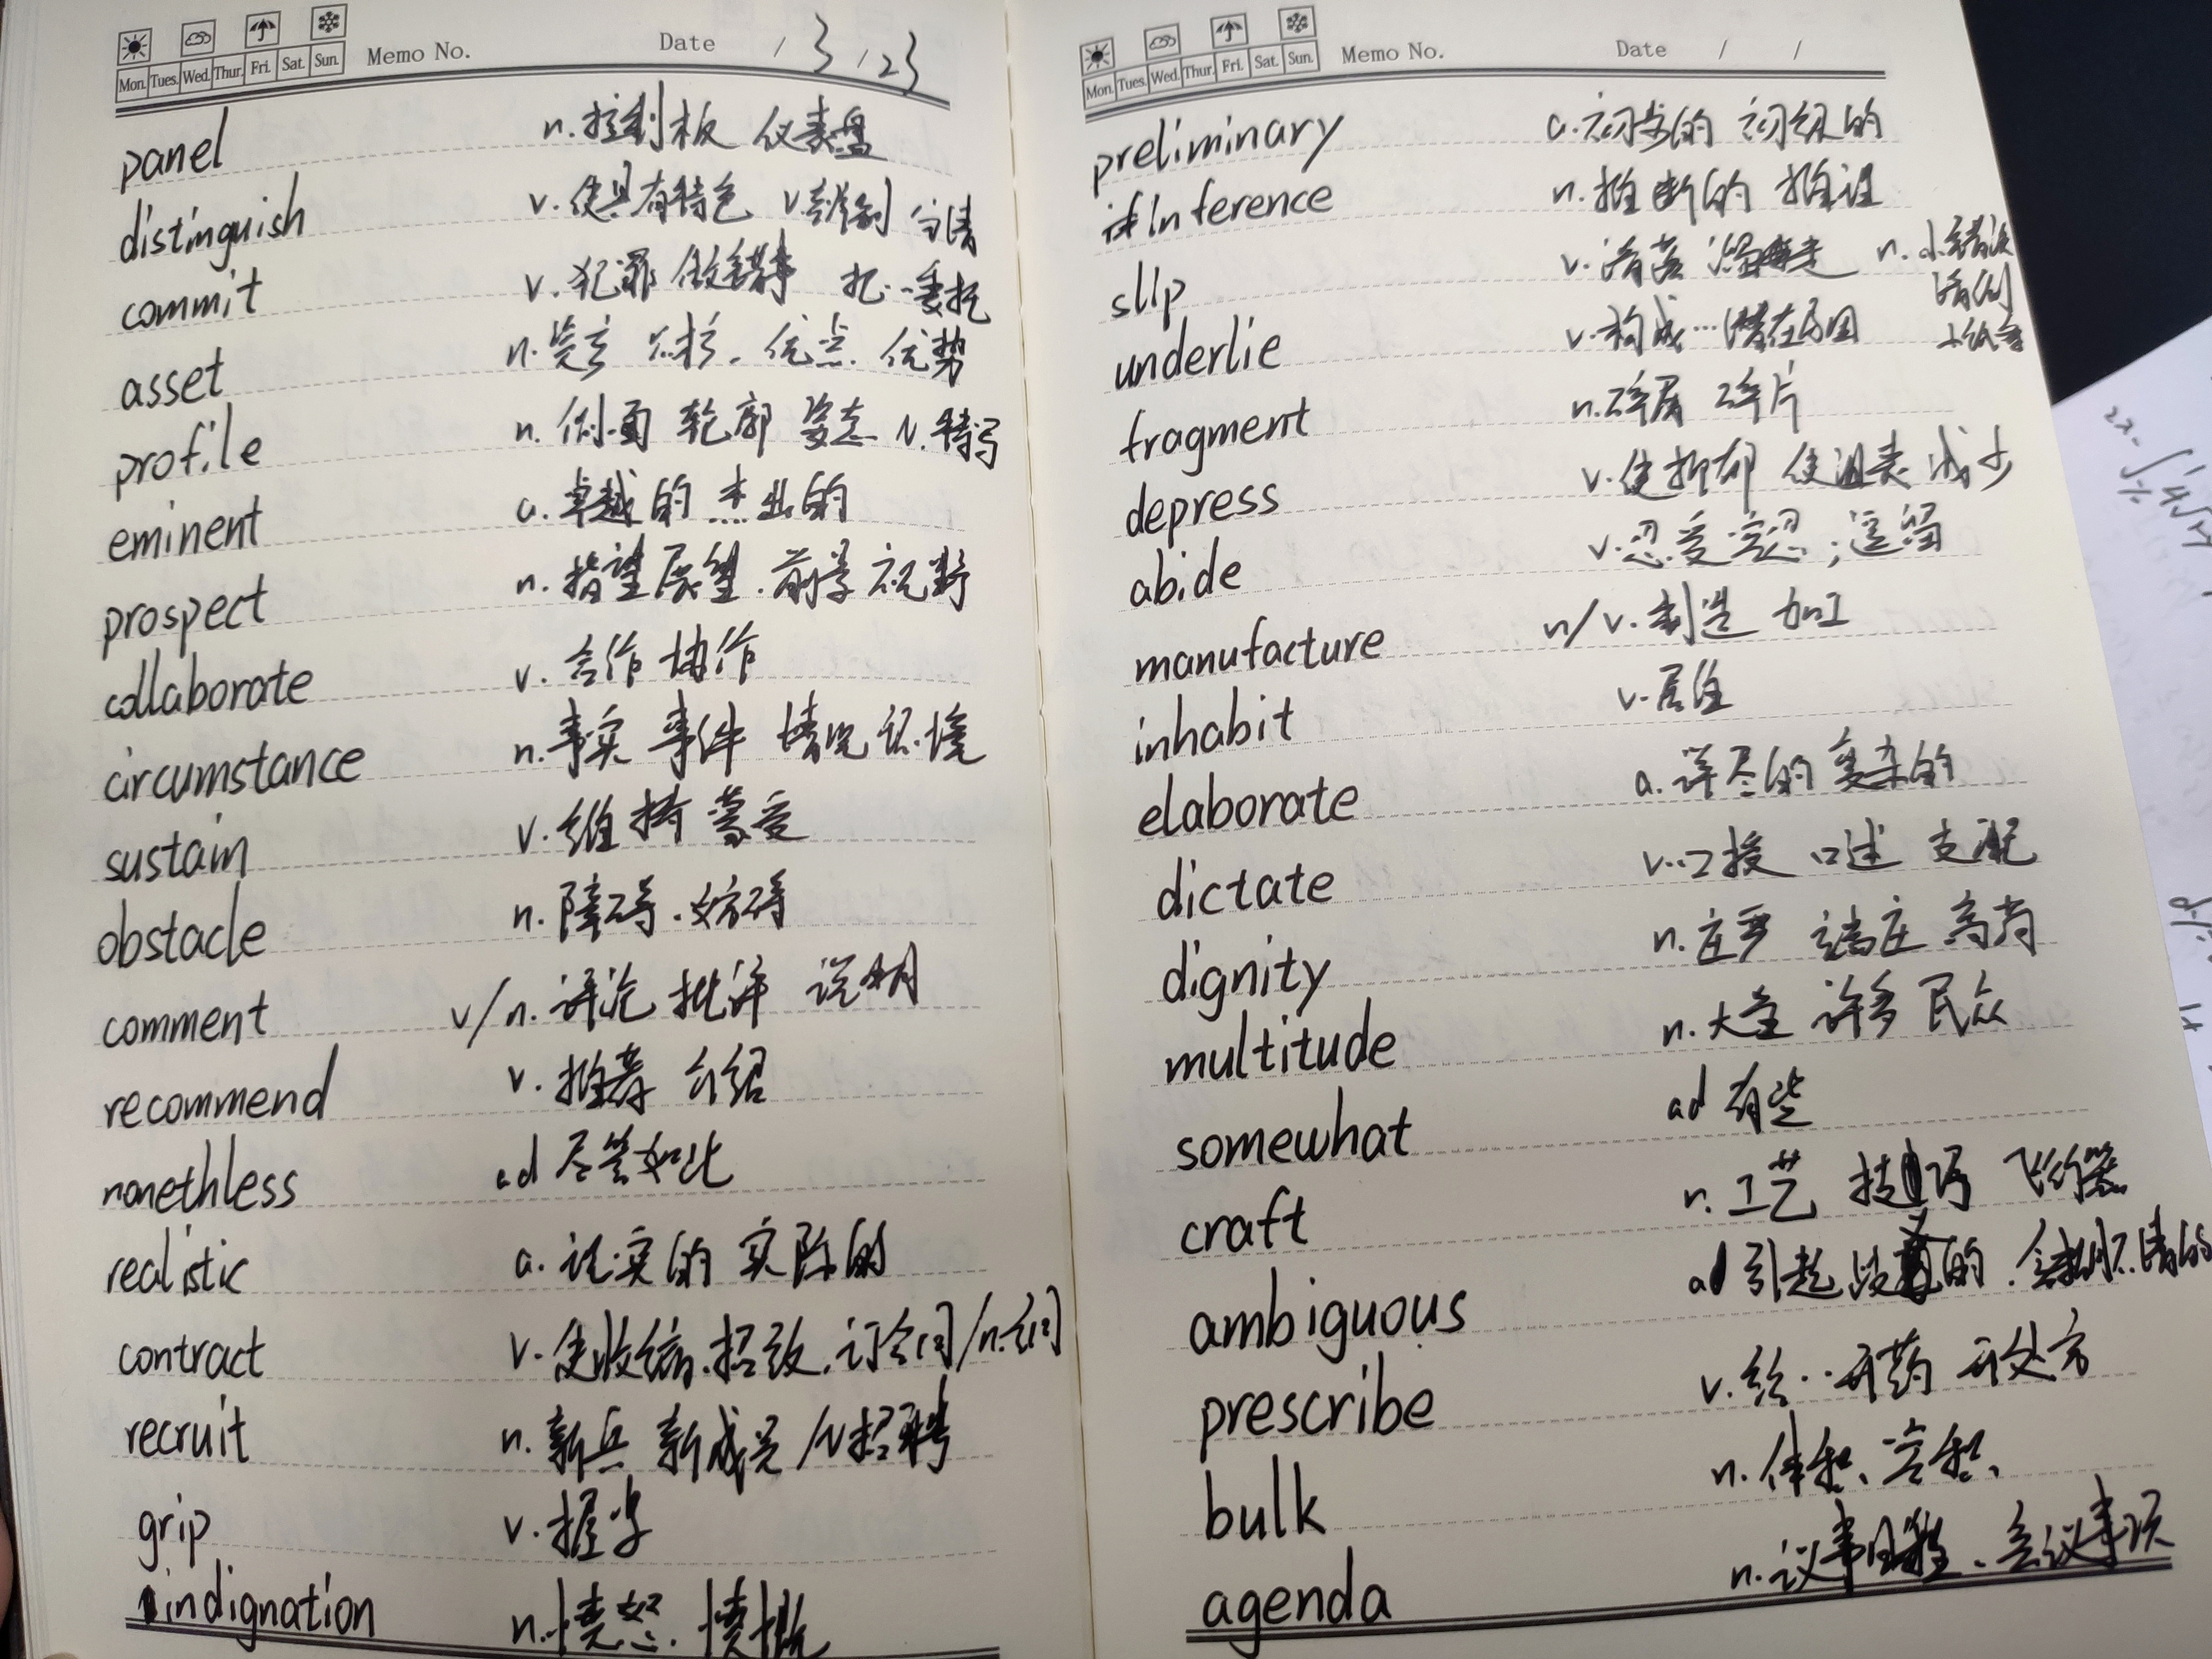 Mon. Tues. Wed. Thur. Fri. Sat. Sun. Memo No. Date / 3 / 23
panel n. 控制板 仪表盘
distinguish v. 使具有特色 v. 分清
commit v. 犯罪 做错事 把…委托
asset n. 资产 优点. 优势
profile n. 侧面 轮廓 姿态 N. 特写
eminent a. 卓越的 杰出的
prospect n. 指望 展望. 前景 视野
collaborate v. 合作 协作
circumstance n. 事实 事件 情况 环境
sustain v. 维持 蒙受
obstacle n. 障碍. 妨碍
comment v/n. 评论 批评 说明
recommend v. 推荐 介绍
nonethless ad 尽管如此
realistic a. 现实的 实际的
contract v. 使收缩. 招致. 订合同/n. 合同
recruit n. 新兵 新成员 /v 招聘
grip v. 握牢
indignation n. 愤怒. 愤慨
Mon. Tues. Wed. Thur. Fri. Sat. Sun. Memo No. Date / /
preliminary a. 初步的 初级的
inference n. 推断的 推理
slip v. 滑落 溜走 n. 小错误
滑倒
小纸条
underlie v. 构成…潜在原因
fragment n. 碎屑 碎片
depress v. 使抑郁 使沮丧 减少
abide v. 忍受 容忍; 逗留
manufacture n/v. 制造 加工
inhabit v. 居住
elaborate a. 详尽的 复杂的
dictate v. 口授 口述 支配
dignity n. 庄严 端庄 高尚
multitude n. 大量 许多 民众
somewhat ad 有些
craft n. 工艺 技巧 飞行器
ambiguous ad 引起歧义的.
prescribe v. 给…开药 开处方
bulk n. 体积、容积、
agenda n. 议事日程、会议事项